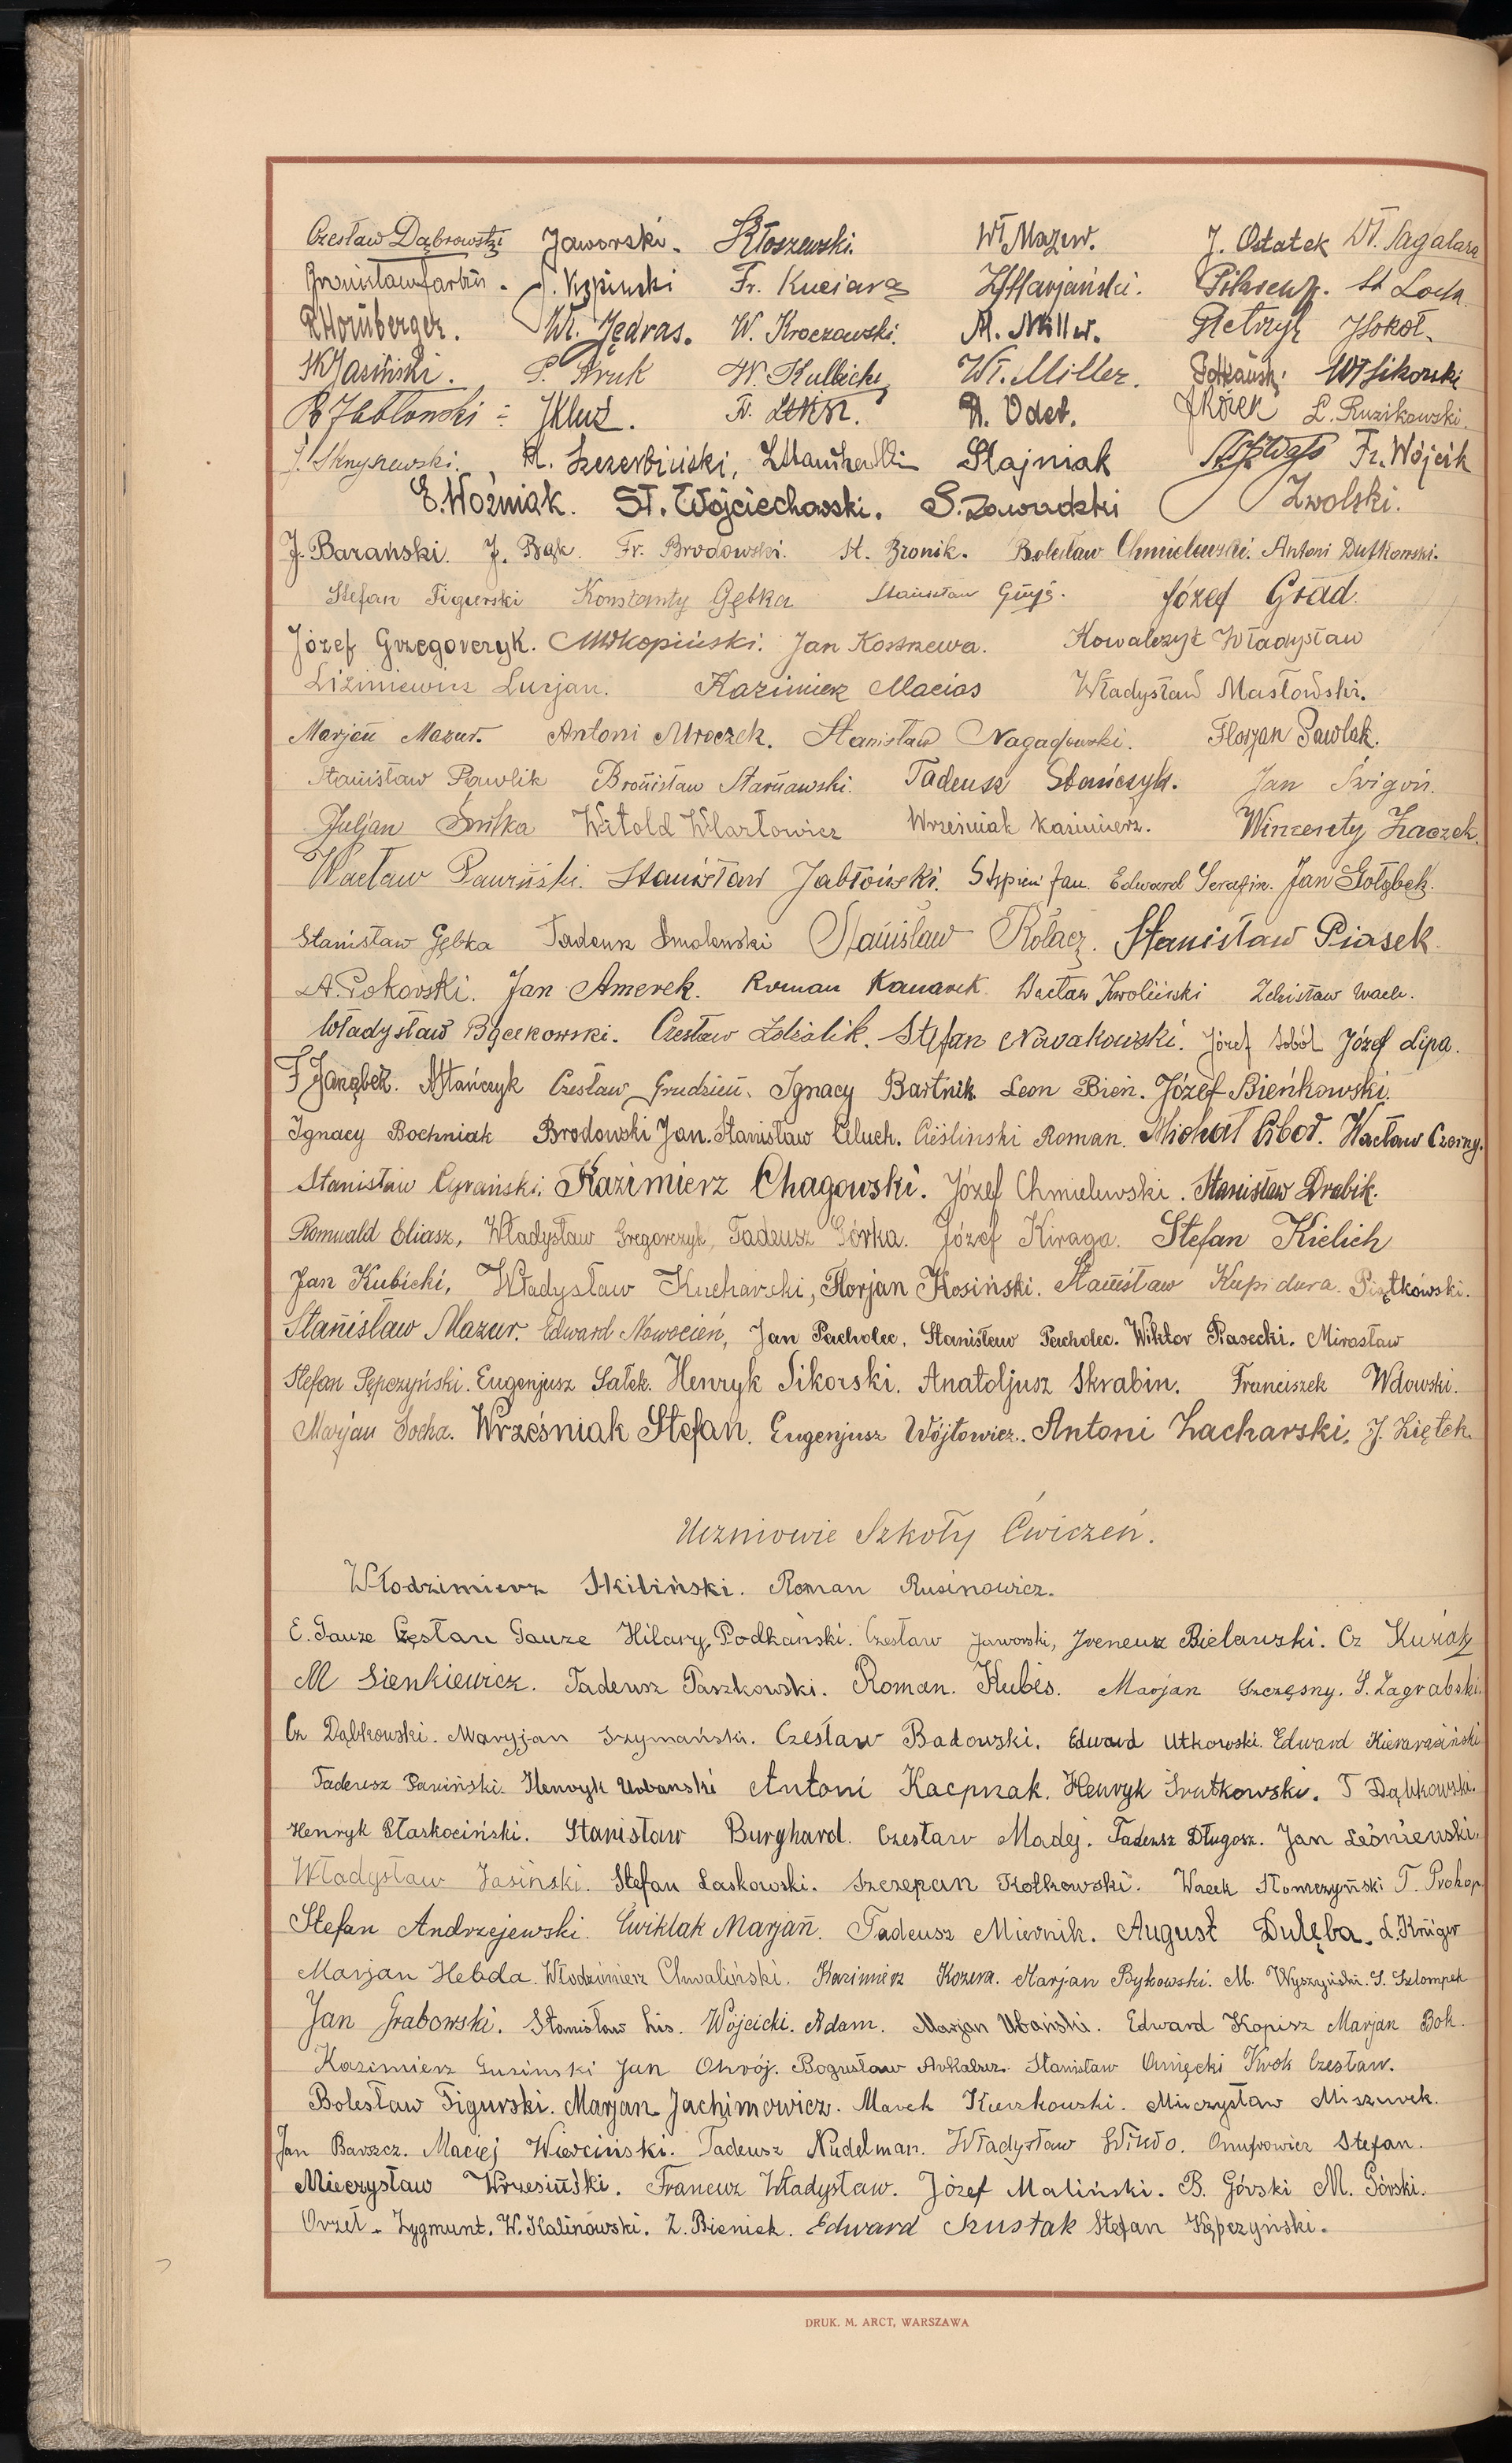 Czesław Dąbrowski Jaworski. Kłoszewski. Wł Mazur. J. Ostatek Wł. Sagalara
Fr. Kuciara St Loch
R Hornberger. Wł. Jędras. W. Kroczowski. M. Miller. Pietrzyk J Sokoł.
W Jasiński. P. Kruk W. Kulbicki Wł. Miller. Wł Sikorski
B Jabłonski J Kluź. A. Odet. J Rożek L. Ruzikowski.
R. Szczerbiński, Stajniak Fr. Wójcik
E. Woźniak. St. Wojciechowski. S. Zawadzki Zwolski.
J. Barański. J. Bąk. Fr. Brodowski. St. Bronik. Bolesław Chmielewski. Antoni Dutkowski.
Stefan Figurski Konstanty Gębka Stanisław Józef Grad.
Józef Grzegorczyk. Jan Kossnewa. Kowalczyk Władysław
Liźniewicz Lucjan. Kazimierz Macias Władysław Masłowski.
Marjan Mazur. Antoni Mroczek. Stanisław Nagadowski. Florjan Pawlak.
Stanisław Pawlik Bronisław Starnawski. Tadeusz Stańczyk. Jan Świgoń.
Juljan Śmitka Witold Wlazłowicz Wrześniak Kazimierz. Wincenty Zaczek.
Wacław Pawiński. Stanisław Jabłoński. Stępień Jan. Edward Serafin. Jan Gołąbek.
Stanisław Gębka Tadeusz Smolenski Stanisław Kołacz. Stanisław Piasek
A. Pokorski. Jan Amerek. Roman Kanarek Wacław Kwoliński Zdzisław Wach.
Władysław Bąckowski. Czesław Zdziolik. Stefan Nowakowski. Józef Soból Józef Lipa.
F Jarząbek. M Stańczyk Czesław Grudzień. Ignacy Bartnik. Leon Bien. Józef Bieńkowski.
Ignacy Bochniak Brodowski Jan. Stanisław Celuch. Cieślinski Roman. Michał Cibor. Wacław Czarny.
Stanisław Cyrański. Kazimierz Chagowski. Józef Chmielewski. Stanisław Drabik.
Romuald Eliasz, Władysław Gregorczyk, Tadeusz Górka. Józef Kiraga. Stefan Kielich
Jan Kubicki, Władysław Kucharski, Florjan Kosiński. Stanisław Kupidura. Piątkowski.
Stanisław Mazur. Edward Nowocień, Jan Pacholec, Stanisław Pacholec. Wiktor Piasecki. Mirosław
Stefan Pępczyński. Eugenjusz Sałek. Henryk Sikorski. Anatoljusz Skrabin. Franciszek Wdowski.
Marjan Socha. Wrześniak Stefan. Eugenjusz Wójtowicz. Antoni Zacharski. J. Ziętek.
Uczniowie Szkoły Ćwiczeń.
Włodzimierz Skiliński. Roman Rusinowicz.
E. Gauze Częsłau Gauze Hilary Podkański. Czesław Jaworski, Ireneusz Bielawski. Cz Kusiak
M Sienkiewicz. Tadeusz Paszkowski. Roman. Kubis. Marjan Szczęsny. S. Zagrabski.
Cz Dąbkowski. Maryjan Szymański. Czesław Badowski. Edward Utkowski. Edward
Tadeusz Pawiński. Henryk Urbanski Antoni Kacprzak. Henryk Srutkowski. T Dąbkowski.
Henryk Staskociński. Stanisław Burghard. Czesław Madej. Tadeusz Długosz. Jan Leśniewski.
Władysław Jasiński. Stefan Laskowski. Szczepan Kołkowski. Wacek Słomczyński T. Prokop
Stefan Andrzejewski. Ćwiklak Marjan. Tadeusz Miernik. August Dulęba. L. Krüger
Marjan Hebda. Włodzimierz Chwaliński. Kazimierz Kozera. Marjan Bykowski. M. Wyszyński. S. Szlompek
Jan Grabowski. Stanisław Lis. Wójcicki. Adam. Marjan Ubański. Edward Kopisz Marjan Bok.
Kazimierz Gusinski Jan Okrój. Bogusław Arkabuz. Stanisław Osnięcki Kwok Czesław.
Bolesław Figurski. Marjan Jachimowicz. Marek Kuczkowski. Mieczysław Misznrek.
Jan Barszcz. Maciej Wierciński. Tadeusz Nudelman. Władysław Windo. Onufrowicz Stefan.
Mieczysław Wrzesiński. Francuz Władysław. Józef Maliński. B. Górski M. Górski.
Orzeł. Zygmunt. W. Kalinowski. Z. Bieniek. Edward Szustak Stefan Kępczyński.
DRUK. M. ARCT, WARSZAWA